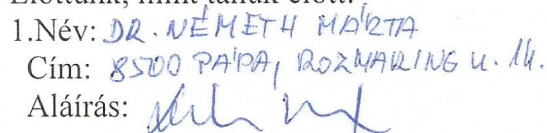 Előttünk, mint tanúk előtt:
1.Név: DR. NÉMETH MÁRTA
Cím: 8500 PÁPA, ROZMARING u. 14.
Aláírás: